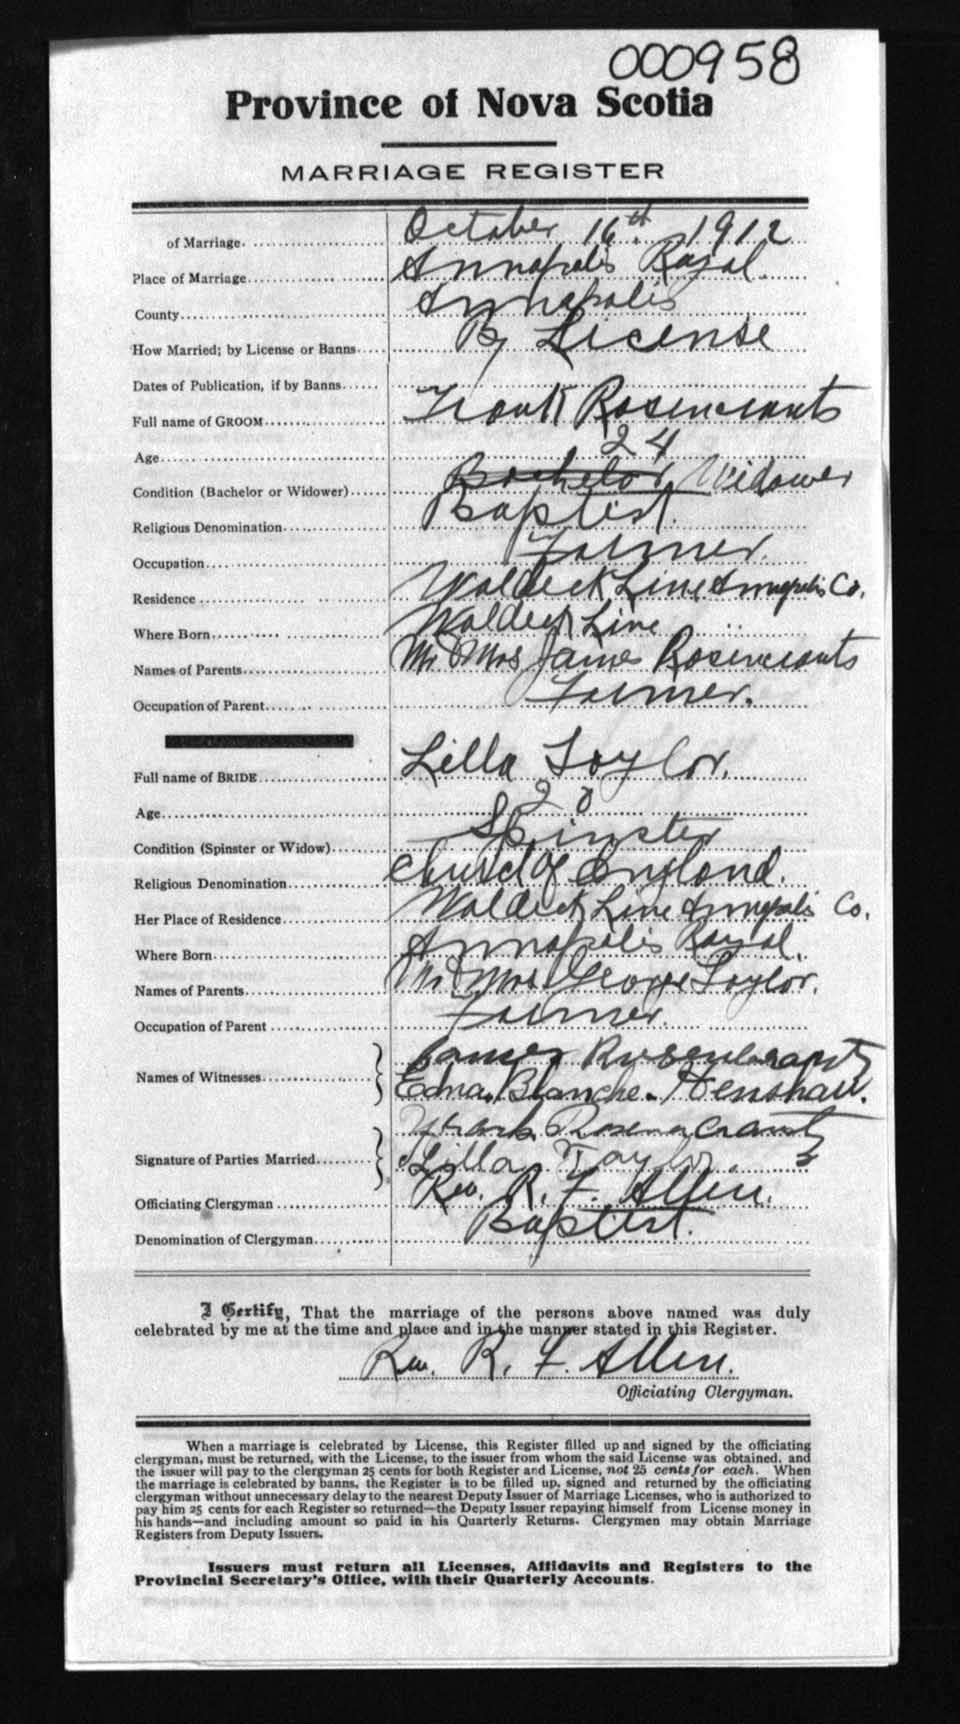 000958
Province of Nova Scotia
MARRIAGE REGISTER
of Marriage. October 16th. 1912
Place of Marriage Annapolis Royal.
County Annapolis
How Married; by License or Banns By License
Dates of Publication, if by Banns
Full name of GROOM Frank Rosencrants
Age 24
Condition (Bachelor or Widower) Bachelor Widower
Religious Denomination Baptist.
Occupation Farmer.
Residence Waldeck Line, Annapolis Co.
Where Born Waldeck Line
Names of Parents Mr. & Mrs James Rosencrants
Occupation of Parent Farmer.
Full name of BRIDE Lilla Taylor.
Age 20
Condition (Spinster or Widow) Spinster
Religious Denomination Church of England.
Her Place of Residence Waldeck Line Annapolis Co.
Where Born Annapolis Royal.
Names of Parents Mr & Mrs. George Taylor.
Occupation of Parent Farmer.
Names of Witnesses James
Edna Blanche Henshaw.
Frank Rosencrantz
Signature of Parties Married Lilla Taylor.
Officiating Clergyman Rev. R. F. Allen.
Denomination of Clergyman Baptist.
I Certify, That the marriage of the persons above named was duly
celebrated by me at the time and place and in the manner stated in this Register.
Rev. R. F. Allen.
Officiating Clergyman.
When a marriage is celebrated by License, this Register filled up and signed by the officiating
clergyman, must be returned, with the License, to the issuer from whom the said License was obtained, and
the issuer will pay to the clergyman 25 cents for both Register and License, not 25 cents for each. When
the marriage is celebrated by banns, the Register is to be filled up, signed and returned by the officiating
clergyman without unnecessary delay to the nearest Deputy Issuer of Marriage Licenses, who is authorized to
pay him 25 cents for each Register so returned—the Deputy Issuer repaying himself from License money in
his hands—and including amount so paid in his Quarterly Returns. Clergymen may obtain Marriage
Registers from Deputy Issuers.
Issuers must return all Licenses, Affidavits and Registers to the
Provincial Secretary's Office, with their Quarterly Accounts.